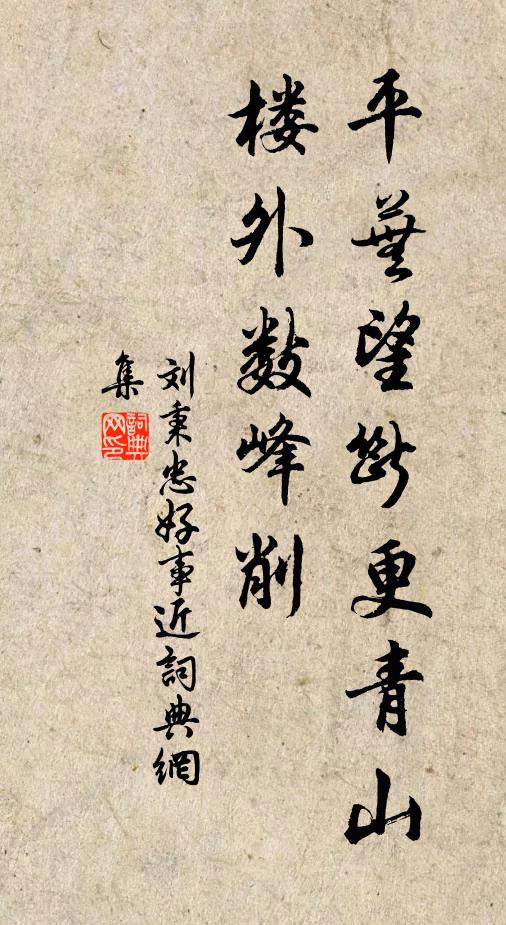 平蕪望斷更青山
楼外數峰削
刘秉忠好事近詞典網
集
詞典
网印